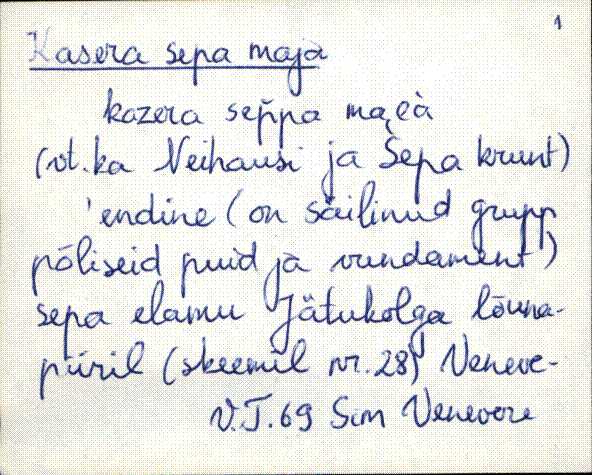 1
Kasera sepa maja
kazera sep̆pa
(vt. ka Neihausi ja Sepa krunt)
'endine (on säilinud grupp
põliseid puid ja vundament)
sepa elamu Jätukolga lõuna-
piiril (skeemil nr. 28) Veneve-
V.T. 69 Sim Venevere